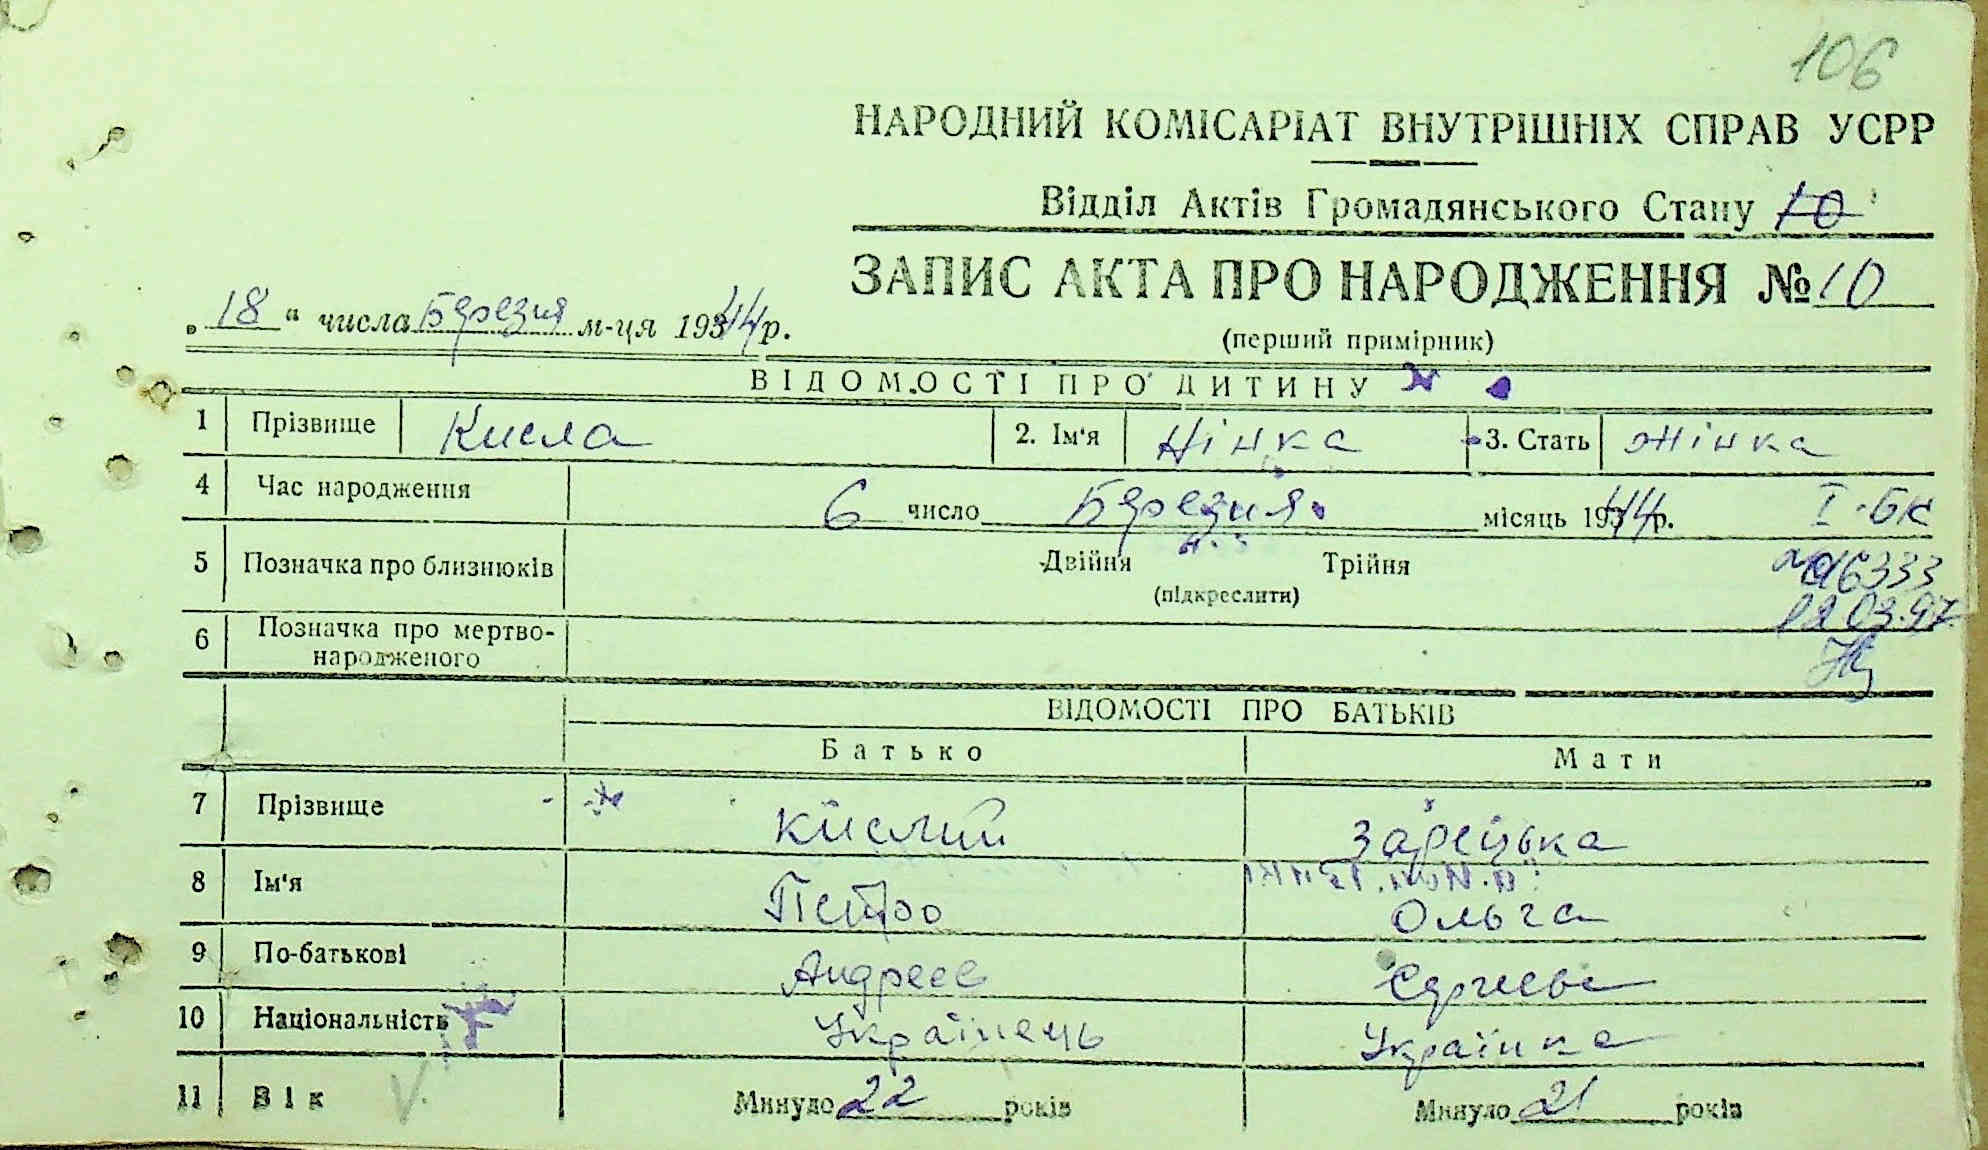 106
НАРОДНИЙ КОМІСАРІАТ ВНУТРІШНІХ СПРАВ УСРР
Відділ Актів Громадянського Стану 10
ЗАПИС АКТА ПРО НАРОДЖЕННЯ № 10
„18“ числа Березня м-ця 1944 р.
(перший примірник)
ВІДОМОСТІ ПРО ДИТИНУ
1 Прізвище Кисла 2. Ім'я Нінка 3. Стать жінка
4 Час народження 6 число Березня місяць 1944 р. І-БК
5 Позначка про близнюків Двійня Трійня
(підкреслити)
№ 016333
12.03.97
6 Позначка про мертво-
народженого
ВІДОМОСТІ ПРО БАТЬКІВ
Батько Мати
7 Прізвище Кислий Зарецька
8 Ім'я Петро Ольга
9 По-батькові Андреев Сергеевн
10 Національність Українець Українка
11 Вік Минуло 22 років Минуло 21 років